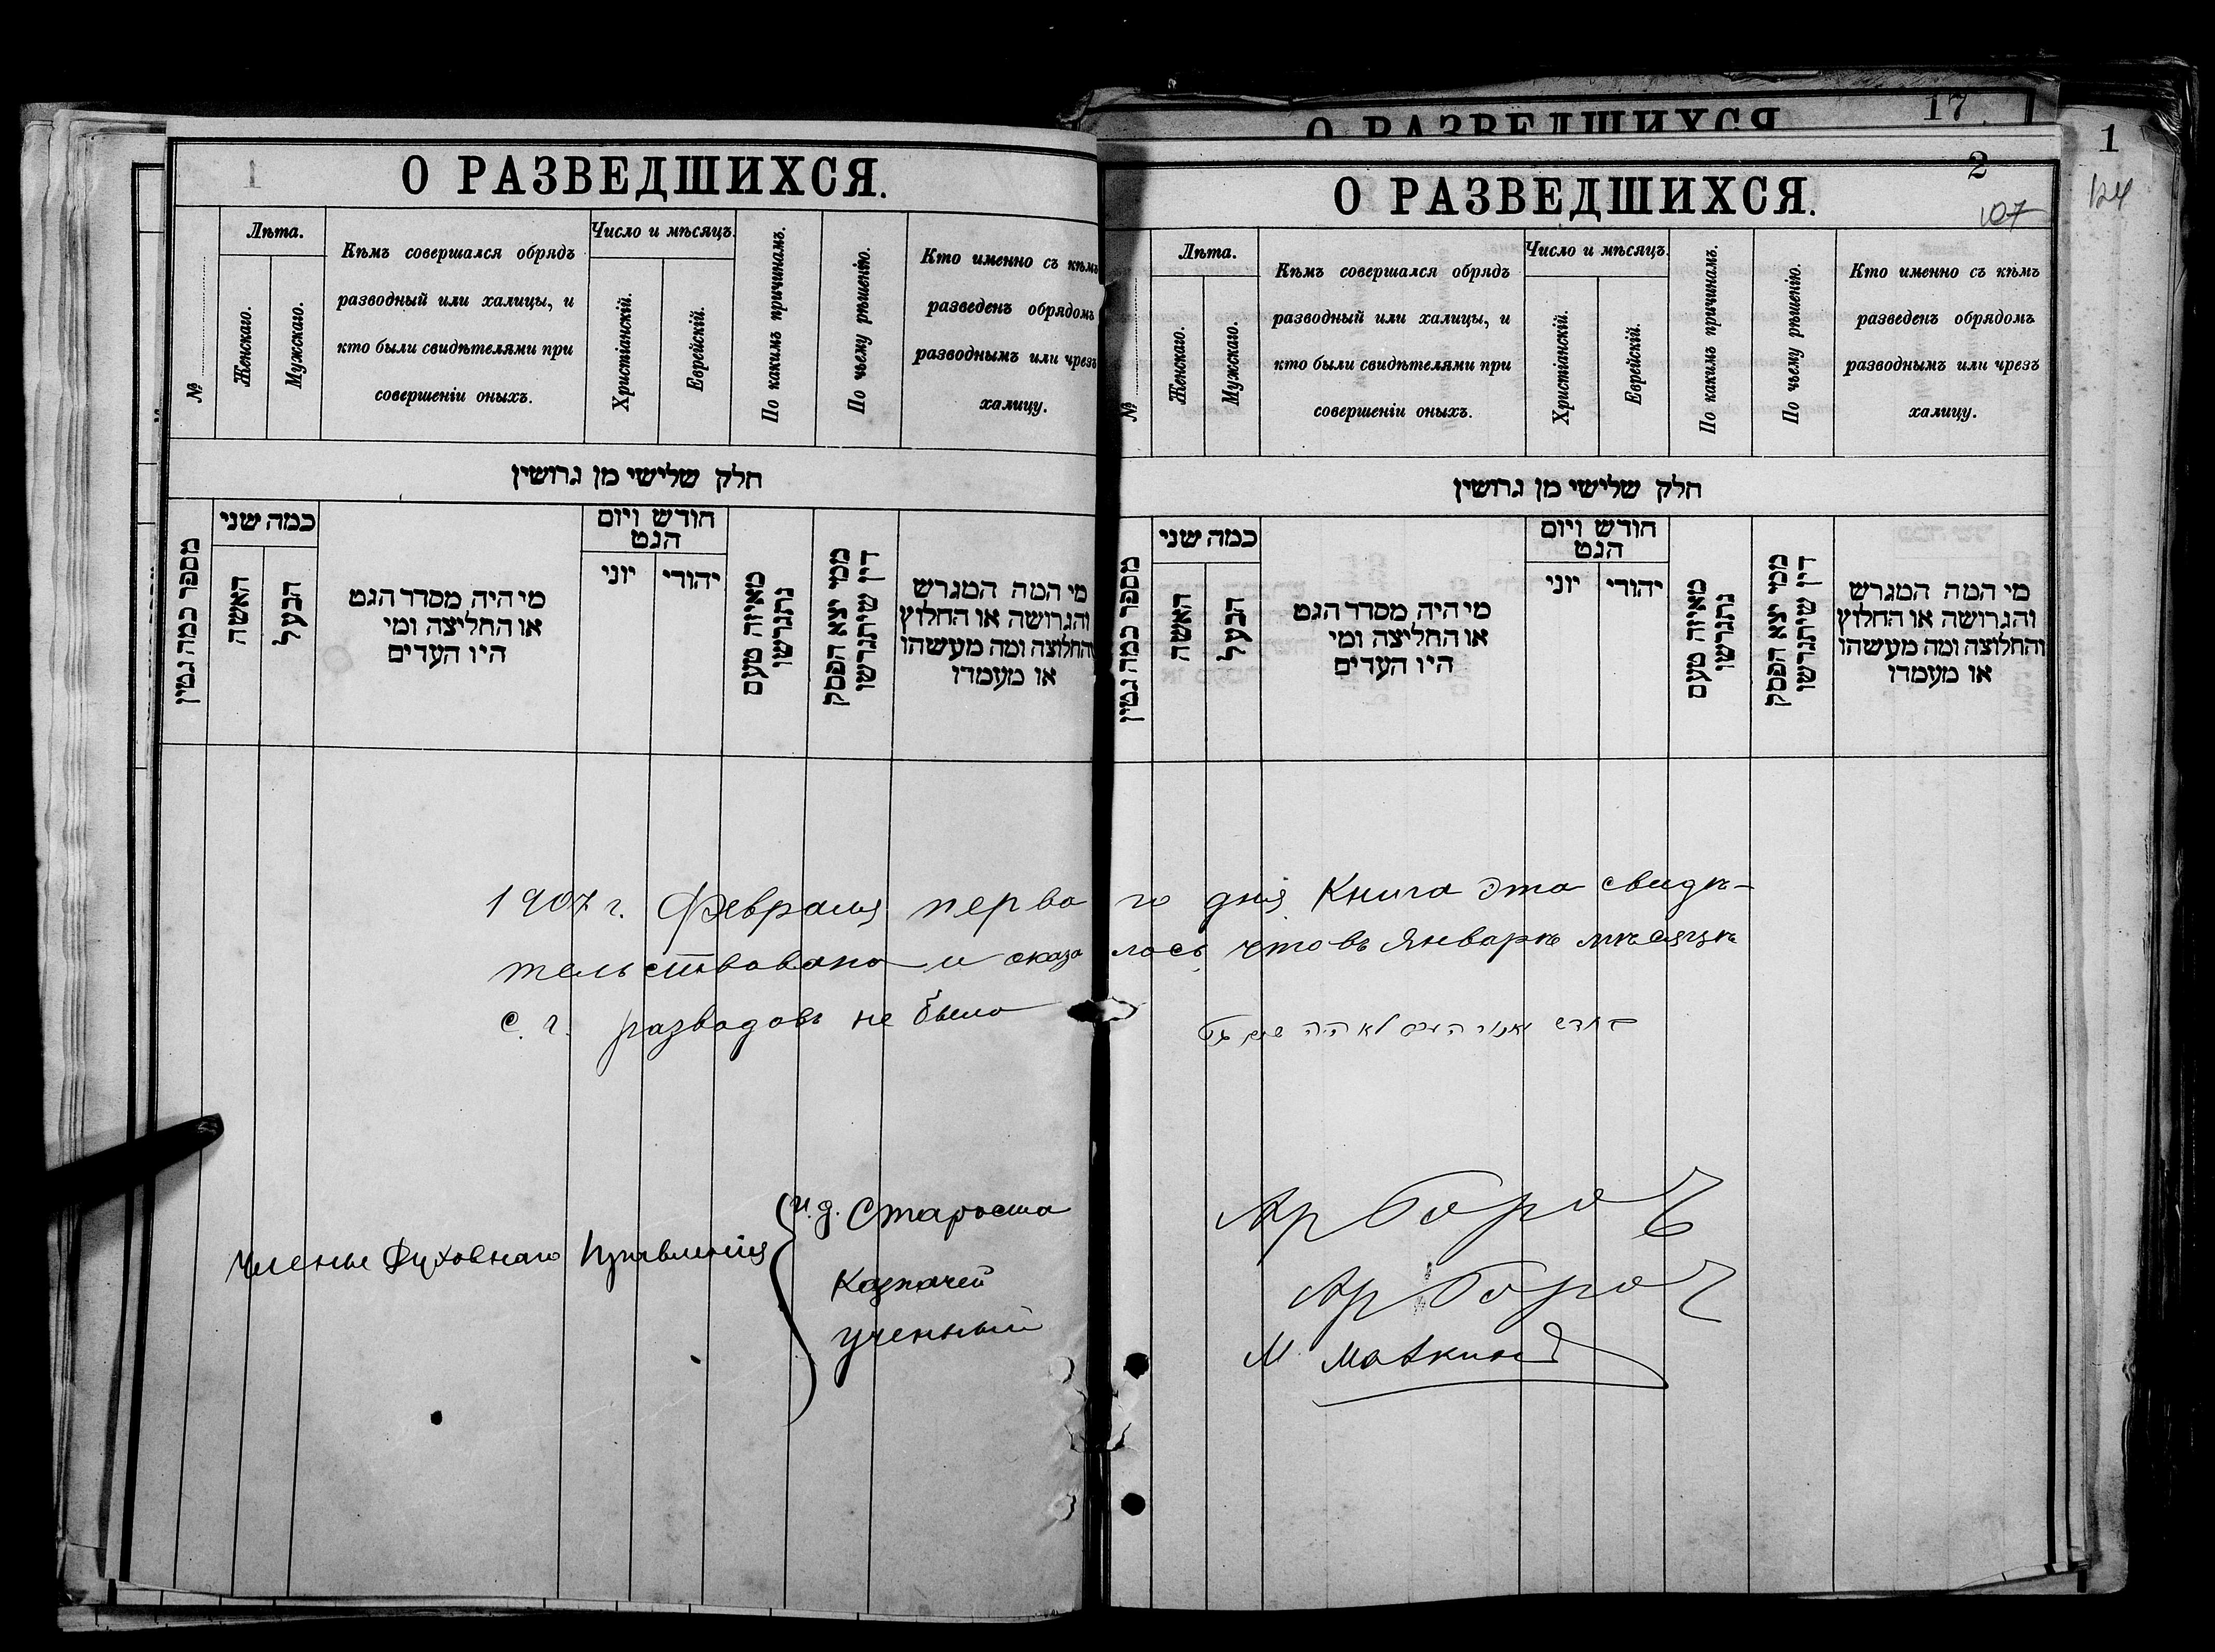 17
О РАЗВЕДШИХСЯ
1
1
О РАЗВЕДШИХСЯ.
№
Лѣта.
Женскаго.
Мужскаго.
Кѣмъ совершался обрядъ
разводный или халицы, и
кто были свидѣтелями при
совершеніи оныхъ.
Число и мѣсяцъ.
Христіанскій.
Еврейскій.
По какимъ причинамъ.
По чьему рѣшенію.
Кто именно съ кѣмъ
разведенъ обрядомъ
разводнымъ или чрезъ
халицу.
חלק שלישי מן גרושין
מספר כמה גטין
כמה שני
האשה
הבעל
מי היה מסדר הגט
או החליצה ומי
היו העדים
חודש ויום
הגט
יוני
יהודי
מאיזה טעם
נתגרשו
ממי יצא הפסק
דין שיתגרשו
מי המה המגרש
והגרושה או החלוץ
והחלוצה ומה מעשהו
או מעמדו
2
107
124
О РАЗВЕДШИХСЯ.
№
Лѣта.
Женскаго.
Мужскаго.
Кѣмъ совершался обрядъ
разводный или халицы, и
кто были свидѣтелями при
совершеніи оныхъ.
Число и мѣсяцъ.
Христіанскій.
Еврейскій.
По какимъ причинамъ.
По чьему рѣшенію.
Кто именно съ кѣмъ
разведенъ обрядомъ
разводнымъ или чрезъ
халицу.
חלק שלישי מן גרושין
מספר כמה גטין
כמה שני
האשה
הבעל
מי היה מסדר הגט
או החליצה ומי
היו העדים
חודש ויום
הגט
יוני
יהודי
מאיזה טעם
נתגרשו
ממי יצא הפסק
דין שיתגרשו
מי המה המגרש
והגרושה או החלוץ
והחלוצה ומה מעשהו
או מעמדו
1907 г. Февраля перваго дня Книга эта свидѣ-
тельствована и оказалось что въ Январѣ мѣсяцѣ
с. г. разводовъ не было
חודש לא היה שום גט
Члены Духовнаго Правленія
И. д. Староста
Казначей
Ученный
Ар
Ар
М.